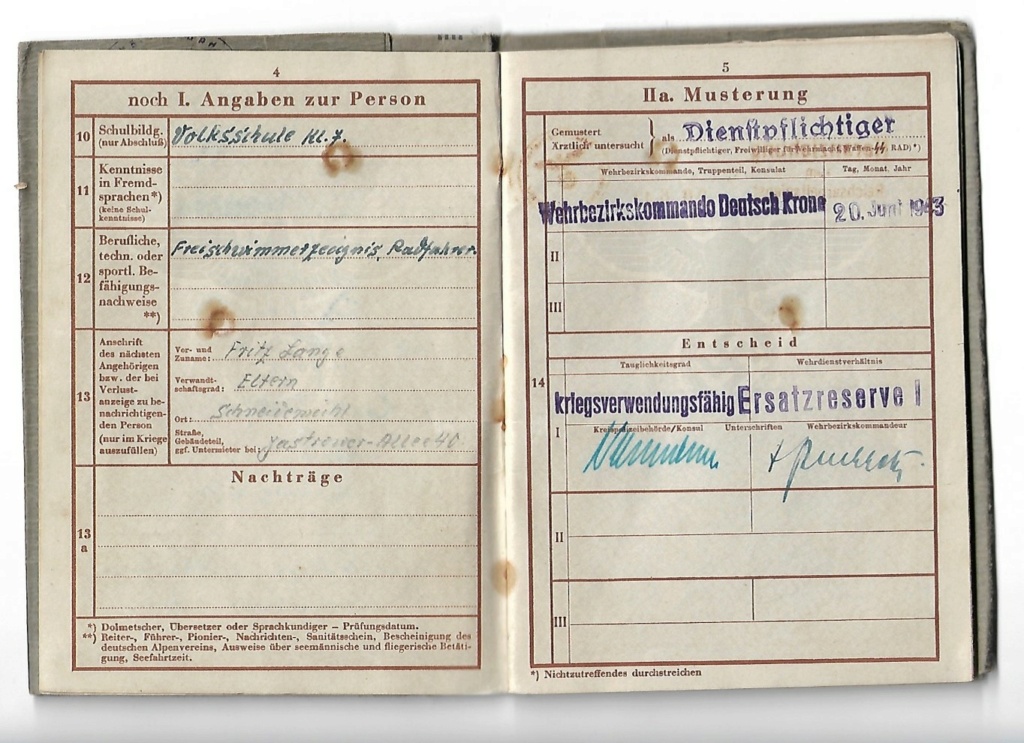 4
noch I. Angaben zur Person
10
Schulbildg.
(nur Abschluß)
Volksschule Kl. 7.
11
Kenntnisse
in Fremd-
sprachen*)
(keine Schul-
kenntnisse)
12
Berufliche,
techn. oder
sportl. Be-
fähigungs-
nachweise
**)
Freischwimmerzeugnis, Radfahrer.
13
Anschrift
des nächsten
Angehörigen
bzw. der bei
Verlust-
anzeige zu be-
nachrichtigen-
den Person
(nur im Kriege
auszufüllen)
Vor- und
Zuname:
Fritz Lange
Verwandt-
schaftsgrad:
Eltern
Ort:
Schneidemühl
Straße,
Gebäudeteil,
ggf. Untermieter bei:
Jastrower-Allee 40
13
a
Nachträge
*) Dolmetscher, Übersetzer oder Sprachkundiger – Prüfungsdatum.
**) Reiter-, Führer-, Pionier-, Nachrichten-, Sanitätsschein, Bescheinigung des
deutschen Alpenvereins, Ausweise über seemännische und fliegerische Betäti-
gung, Seefahrtzeit.
5
IIa. Musterung
14
Gemustert
Ärztlich untersucht
als Dienstpflichtiger
(Dienstpflichtiger, Freiwilliger für Wehrmacht, Waffen-SS, RAD) *)
Wehrbezirkskommando, Truppenteil, Konsulat
Tag, Monat, Jahr
Wehrbezirkskommando Deutsch Krone
20. Juni 1943
II
III
Entscheid
Tauglichkeitsgrad
Wehrdienstverhältnis
kriegsverwendungsfähig
Ersatzreserve I
I
Kreispolizeibehörde/Konsul
Unterschriften
Wehrbezirkskommandeur
II
III
*) Nichtzutreffendes durchstreichen